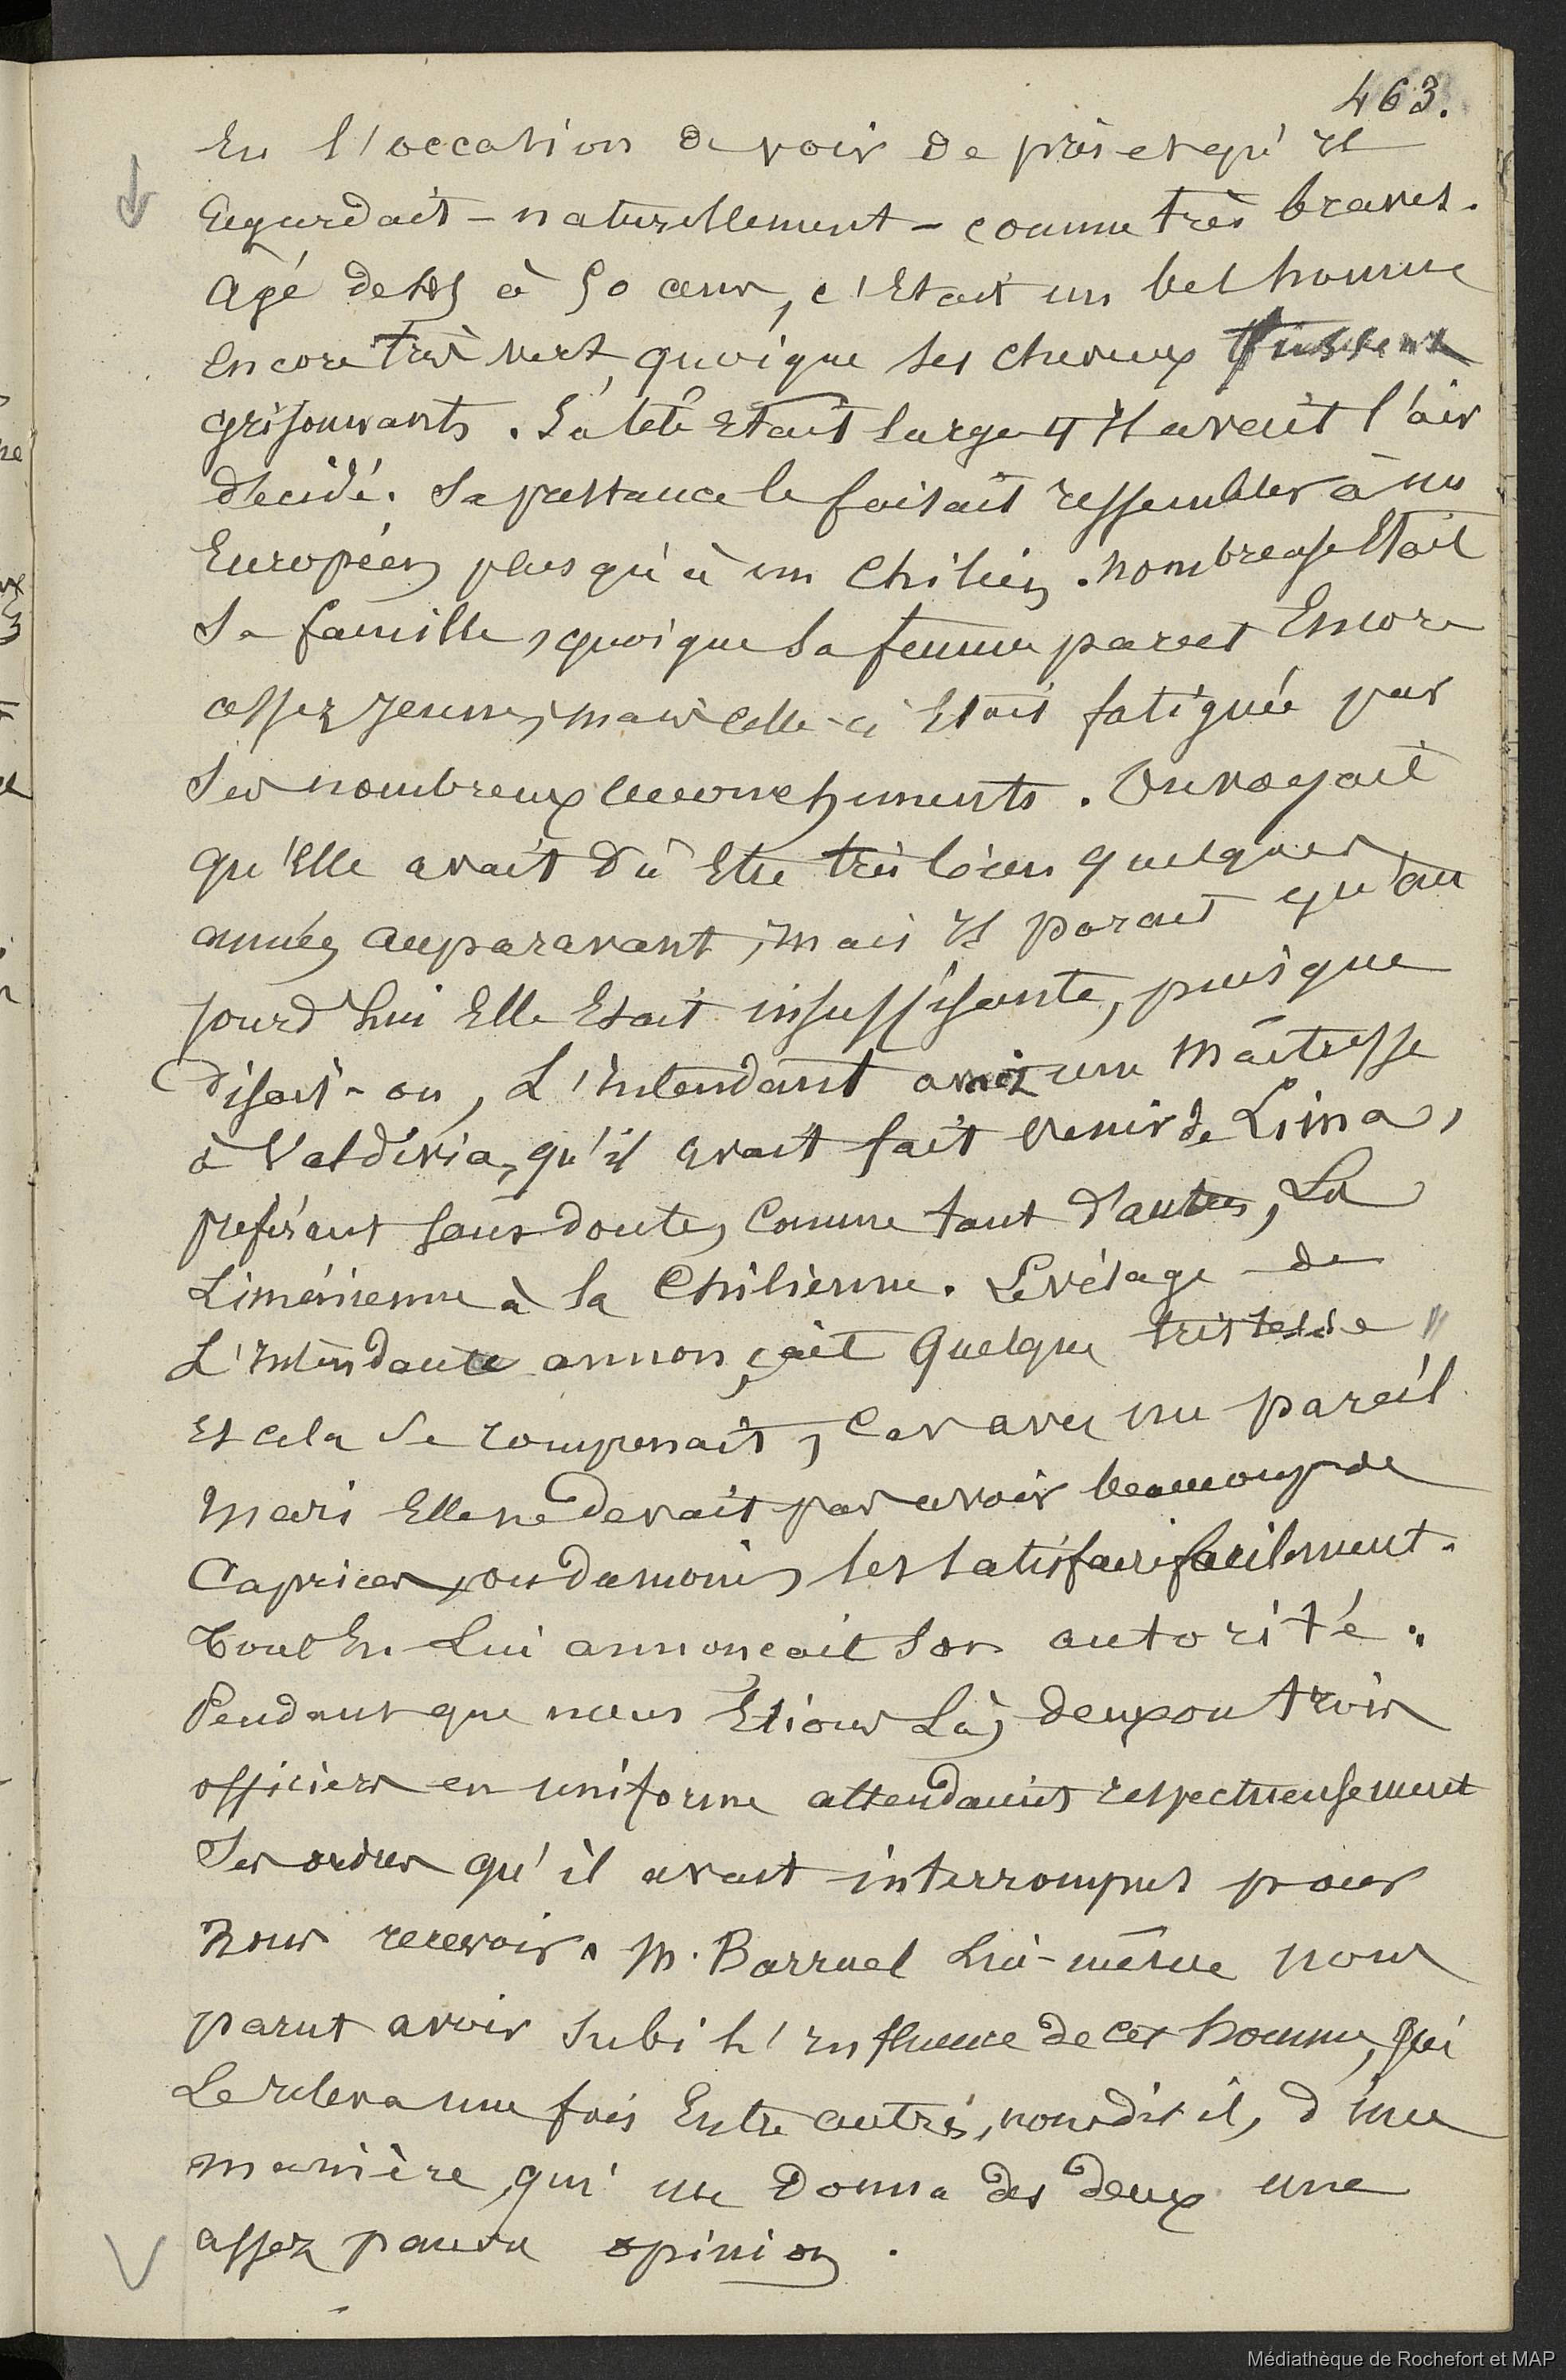 463.
Eu l'occasion de voir de près et qu'Il
Regardait - naturellement - comme très braves.
Agé de 45 à 50 ans, c'Etait un bel homme
encore très vert, quoique ses cheveux fussent
grisonnants. Sa tête Etait large et Il avait l'air
décidé. Sa prestance le faisait ressembler à un
Européen plus qu'à un Chilien. Nombreuse Etait
Sa famille, quoique Sa femme parut Encore
assez Jeune, mais celle-ci Etait fatiguée par
Ses nombreux accouchements. On voyait
qu'Elle avait dû Etre très bien quelques
années auparavant, mais Il parait qu'au
jourd'hui Elle Etait insuffisante, puisque
disait-on, L'Intendant avait une Maîtresse
à Valdivia, qu'il avait fait venir de Lima,
préférant sans doute, comme tant d'autres, La
Liménienne à la Chilienne. Le visage de
L'Intendante annonçait quelque tristesse
Et cela se comprenait, car avec un pareil
Mari Elle ne devait pas avoir beaucoup de
Caprices, ou du moins les satisfaire facilement.
Tout En Lui annonçait son autorité.
Pendant que nous Etions Là, deux ou trois
officiers en uniforme attendaient respectueusement
Ses ordres qu'il avait interrompus pour
Nous recevoir. M. Barruel Lui-même nous
parut avoir Subi L'Influence de cet homme, qui
Le releva une fois Entre autres, nous dit il, d'une
manière qui me donna des deux une
assez pauvre opinion.
Médiathèque de Rochefort et MAP